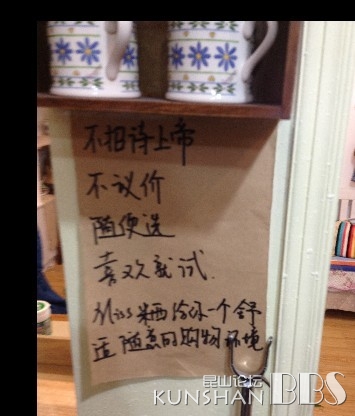 不招待上帝
不议价
随便选
喜欢就试.
Miss米西给你一个舒
适随意的购物环境
昆山论坛
KUNSHAN BBS